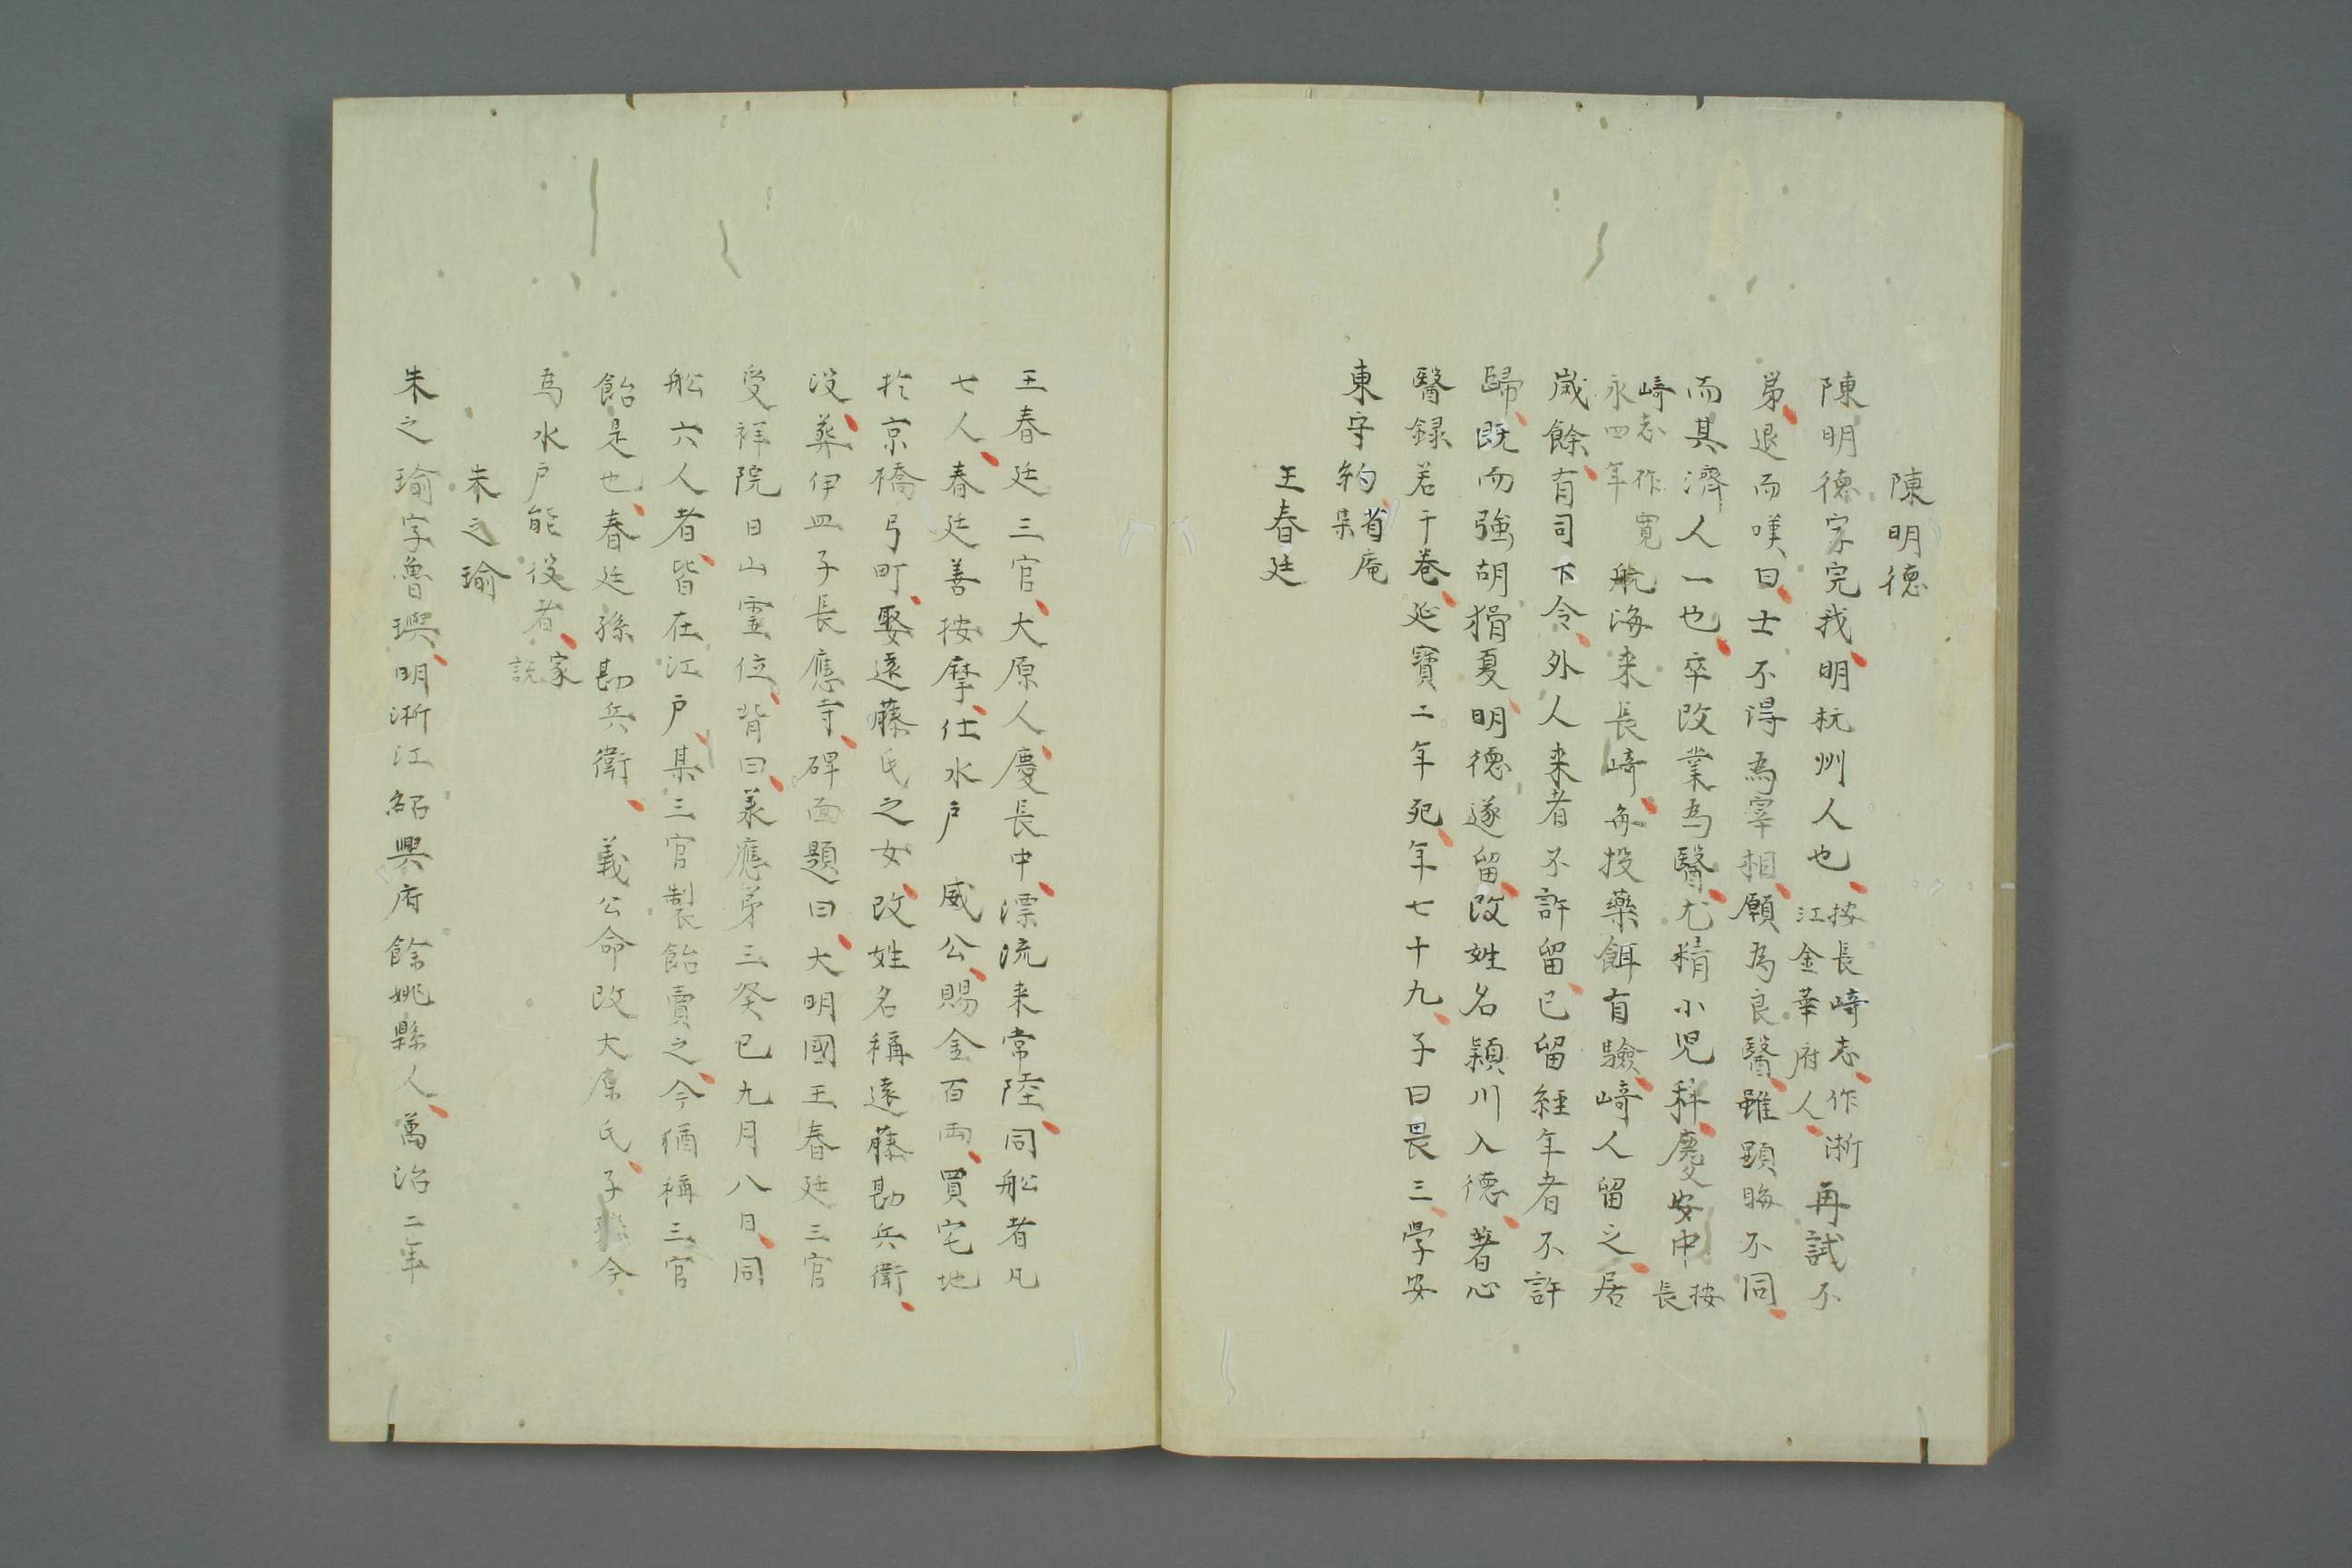 陳明德
陳明德字完我明杭州人也按長崎志作浙江金華府人再試不
弟退而嘆曰士不得為宰相願為良醫雖顕晦不同
而其濟人一也卒改業為醫尤精小児科慶安中按長
崎志作寛永四年航海来長崎每投藥餌有驗崎人留之居
歳餘有司下令外人来者不許留已留經年者不許
歸既而強胡猾夏明德遂留改姓名穎川入德著心
醫録若干巻延寶二年死年七十九子曰畏三學安
東守約省庵集
王春廷
王春廷三官大原人慶長中漂流来常陸同舩者凡
七人春廷善按摩仕水戶 威公賜金百両買宅地
於京橋弓町娶遠藤氏之女改姓名稱遠藤勘兵衛
没葬伊皿子長應寺碑面題曰大明國王春廷三官
受祥院日山霊位背曰羕應弟三癸巳九月八日同
舩六人者皆在江戶某三官製飴賣之今猶稱三官
飴是也春廷孫勘兵衛 義公命改大原氏子孫今
為水戶能役者家説
朱之瑜
朱之瑜字魯璵明浙江紹興府餘姚縣人萬治二年